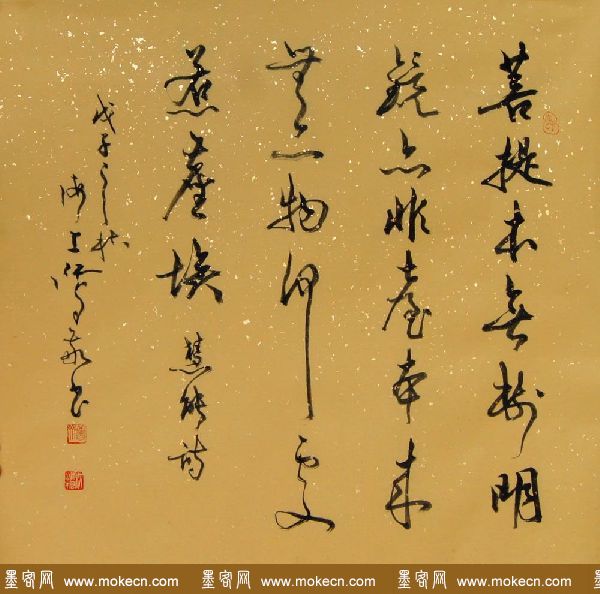 菩提本無樹明
鏡亦非臺本來
無一物何處
惹塵埃 慧能詩
戊子之秋
海上
墨客网 www.mokecn.com 墨客网 www.mokecn.com 墨客网 www.mokecn.com 墨